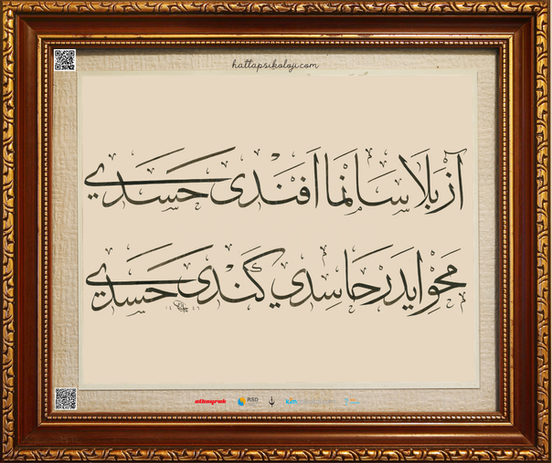 hattapsikoloji.com
آز بلا سانما افندی حسدی
محو ایدر حاسدی كندی حسدی
albayrak RSD